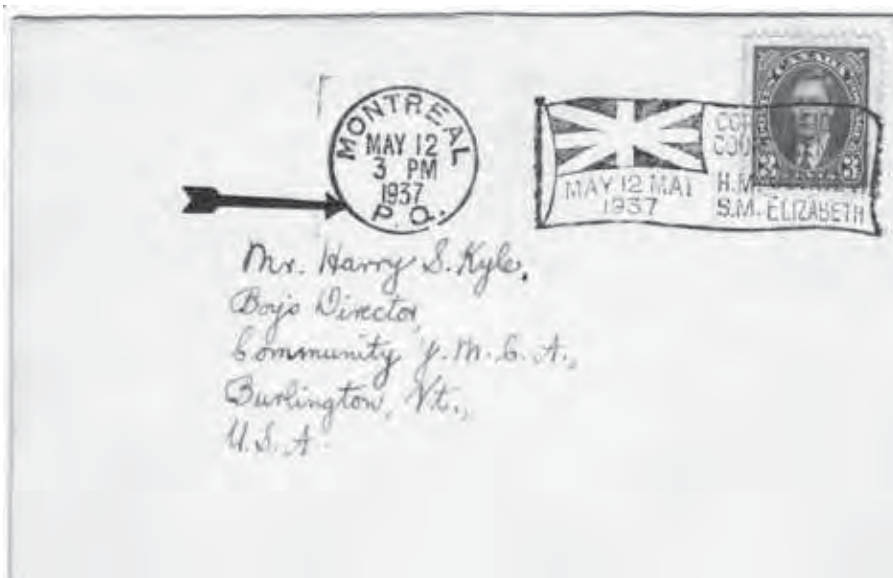 MONTREAL
MAY 12
3 PM
1937
P.Q.
CANADA
3 3
MAY 12 MAI
1937
H.M.
S.M. ELIZABETH
Mr. Harry S. Kyle,
Boy's Director,
Community Y.M.C.A.,
Burlington, Vt.,
U.S.A.